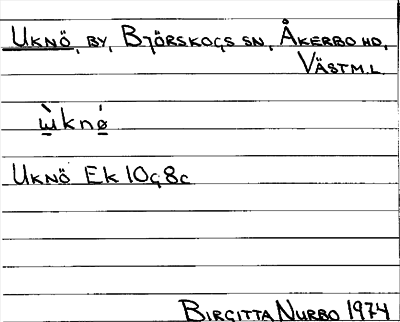 UKNÖ, BY, BJÖRSKOGS SN, ÅKERBO HD,
VÄSTM.L.
ẁ̲knǿ̲
UKNÖ EK 10G8C
BIRGITTA NURBO 1974